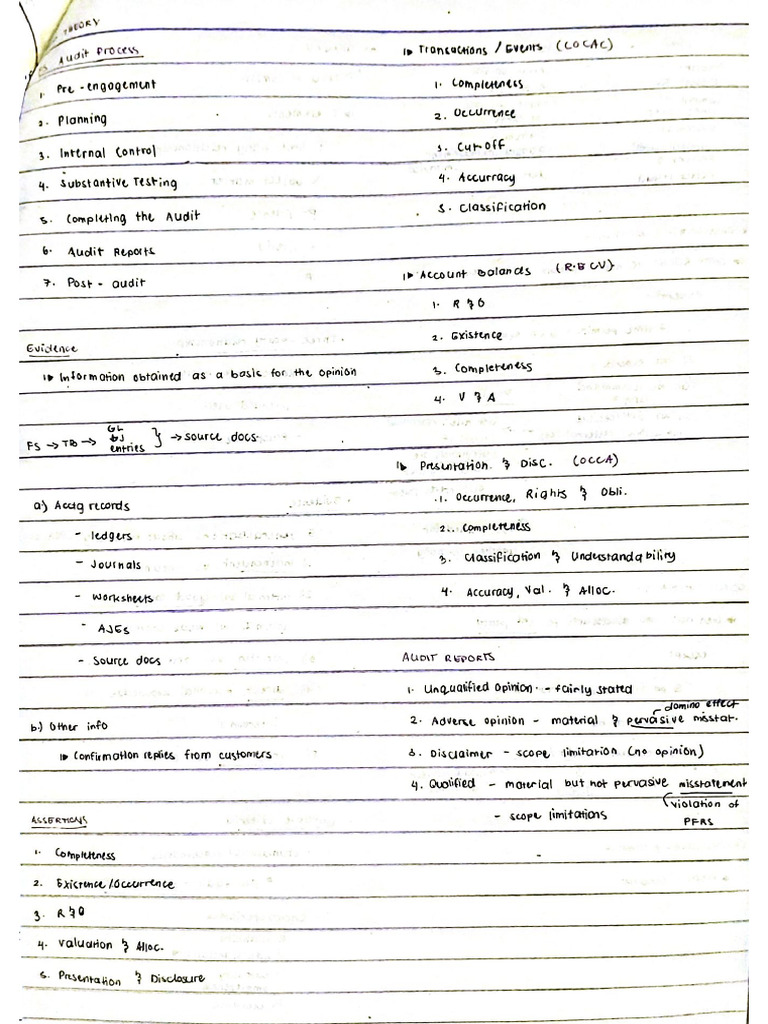 THEORY
Audit Process
1. Pre-engagement
2. Planning
3. Internal Control
4. Substantive Testing
5. Completing the Audit
6. Audit Reports
7. Post-audit
Evidence
Information obtained as a basis for the opinion
FS → TB → GL
GJ
entries } → source docs.
a) Acctg records
- ledgers
- Journals
- Worksheets
- AJEs
- Source docs
b.) Other info
Confirmation replies from customers
ASSERTIONS
1. Completeness
2. Existence/Occurrence
3. R & O
4. Valuation & Alloc.
5. Presentation & Disclosure
Transactions / Events (COCAC)
1. Completeness
2. Occurrence
3. Cut-off.
4. Accurracy
5. Classification
Account Balances (R.E CV)
1. R & O
2. Existence
3. Completeness
4. V & A
Presentation & Disc. (OCCA)
1. Occurrence, Rights & Obli.
2. Completeness
3. Classification & Understandability
4. Accuracy, Val. & Alloc.
AUDIT REPORTS
1. Unqualified Opinion - fairly stated
domino effect
2. Adverse opinion - material & pervasive misstat.
3. Disclaimer - scope limitation (no opinion)
4. Qualified - material but not pervasive misstatement
violation of
PFRS
- scope limitations